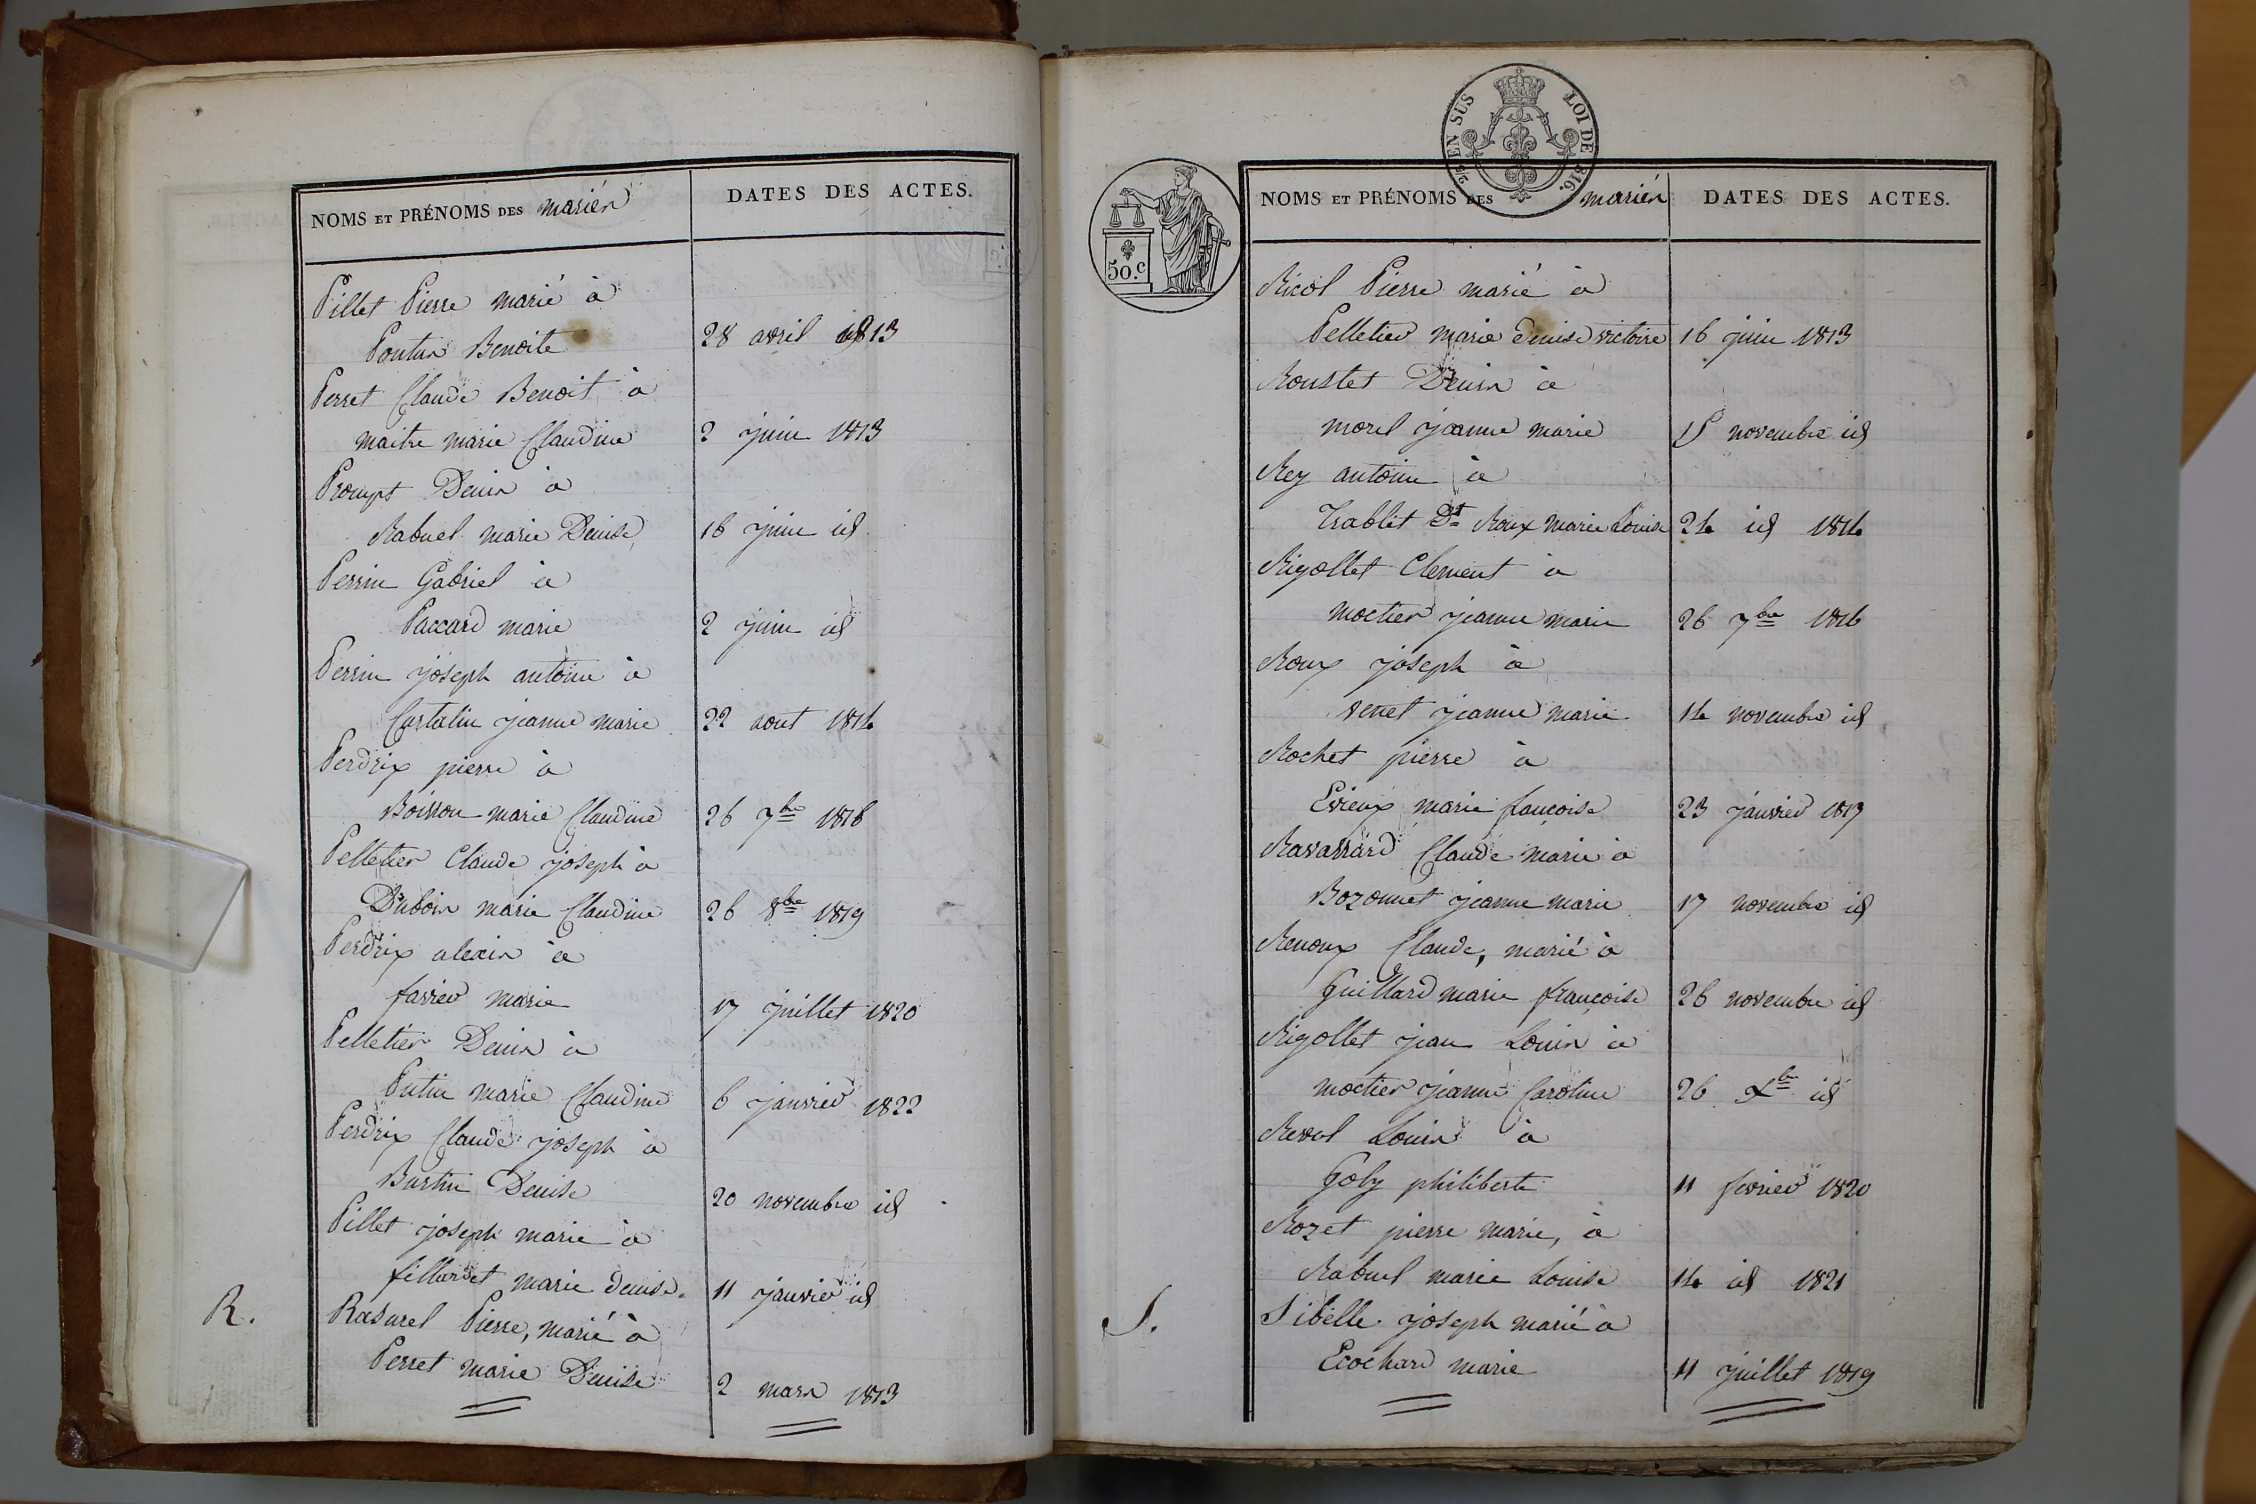 NOMS ET PRÉNOMS DES mariés
DATES DES ACTES.
Pillet Pierre marié à
Benoite 28 avril 1813
Perret Claude Benoit à
maitre marie Claudine 2 juin 1813
Prompt Denis à
Rabuel marie Denise 16 juin id
Perrin Gabriel à
Paccard marie 2 juin id
Perrin joseph antoine à
jeanne marie 22 aout 1814
Perdrix pierre à
Boisson marie Claudine 26 7bre 1816
Pelletier Claude joseph à
Dubois marie Claudine 26 8bre 1819
Perdrix alexis à
favier marie 17 juillet 1820
Pelletier Denis à
Putin marie Claudine 6 janvier 1822
Perdrix Claude joseph à
Denise 20 novembre id
Pillet joseph marie à
fillardet marie denise. 11 janvier id
R. Rasurel Pierre, marié à
Perret marie Denise 2 mars 1813
EN SUS LOI DE 1816.
50.c
NOMS ET PRÉNOMS DES mariés
DATES DES ACTES.
Ricol Pierre marié à
Pelletier marie denise victoire 16 juin 1813
Roustet Denis à
morel jeanne marie 15 novembre id
Rey antoine à
Trablit Dt Roux marie Louise 24 id 1814
Rigollet Clement à
moctier jeanne marie 26 7bre 1816
Roux joseph à
venet jeanne marie 14 novembre id
Rochet pierre à
Evieux marie françoise 23 janvier 1819
Ravassard Claude marie à
Bozonnet jeanne marie 17 novembre id
Renoux Claude, marié à
Guillard marie françoise 26 novembre id
Rigollet jean Louis à
moctier jeanne Caroline 26 Xbre id
Revol Louis à
Goby philiberte 11 fevrier 1820
Rozet pierre marie, à
Rabuel marie Louise 14 id 1821
S. Sibelle joseph marié à
Ecochard marie 11 juillet 1819